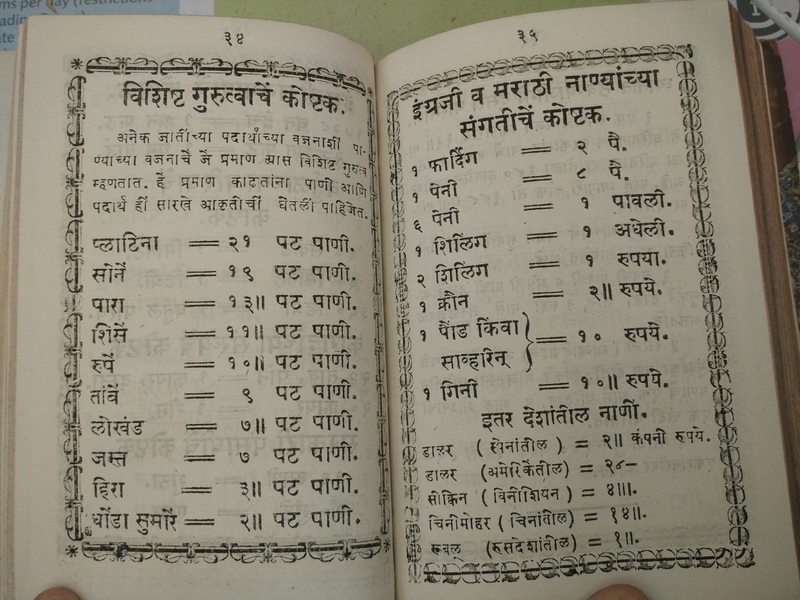 ms per day (restrictions
३४
विशिष्ट गुरुत्वाचें कोष्टक.
अनेक जातींच्या पदार्थांच्या वजनाशीं पा-
ण्याच्या वजनाचें जें प्रमाण त्यास विशिष्ट गुरुत्व
म्हणतात. हें प्रमाण काढतांना पाणी आणि
पदार्थ हीं सारखे आकृतीचीं घेतलीं पाहिजेत.
प्लाटिना = २१ पट पाणी.
सोनें = १९ पट पाणी.
पारा = १३॥ पट पाणी.
शिसें = ११॥ पट पाणी.
रुपें = १०॥ पट पाणी.
तांबें = ९ पट पाणी.
लोखंड = ७॥ पट पाणी.
जस्त = ७ पट पाणी.
हिरा = ३॥ पट पाणी.
धोंडा सुमारें = २॥ पट पाणी.
३५
इंग्रजी व मराठी नाण्यांच्या
संगतीचें कोष्टक.
१ फार्दिंग = २ पै.
१ पेनी = ८ पै.
६ पेनी = १ पावली.
१ शिलिंग = १ अधेली.
२ शिलिंग = १ रुपया.
१ क्रौन = २॥ रुपये.
१ पौंड किंवा
साव्हरिन् } = १० रुपये.
१ गिनी = १०॥ रुपये.
इतर देशांतील नाणीं.
डालर ( स्पेनांतील ) = २॥ कंपनी रूपये.
डालर (अमेरिकेंतील) = २०-
सीकिन ( विनीशियन ) = ४॥।.
चिनीमोहर ( चिनांतील) = १४॥.
रूबल (रूसदेशांतील) = १॥.